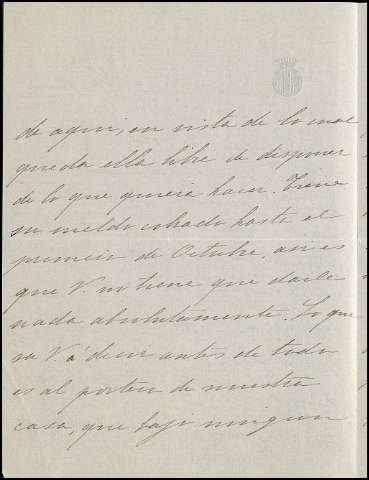 de aquí, en vista de lo cual
queda ella libre de disponer
de lo que quiera hacer. Tiene
su sueldo cobrado hasta el
primero de Octubre, asi es
que V. no tiene que darle
nada absolutamente. Lo que
va V. á decir antes de todo
es al portero de nuestra
casa, que bajo ningun